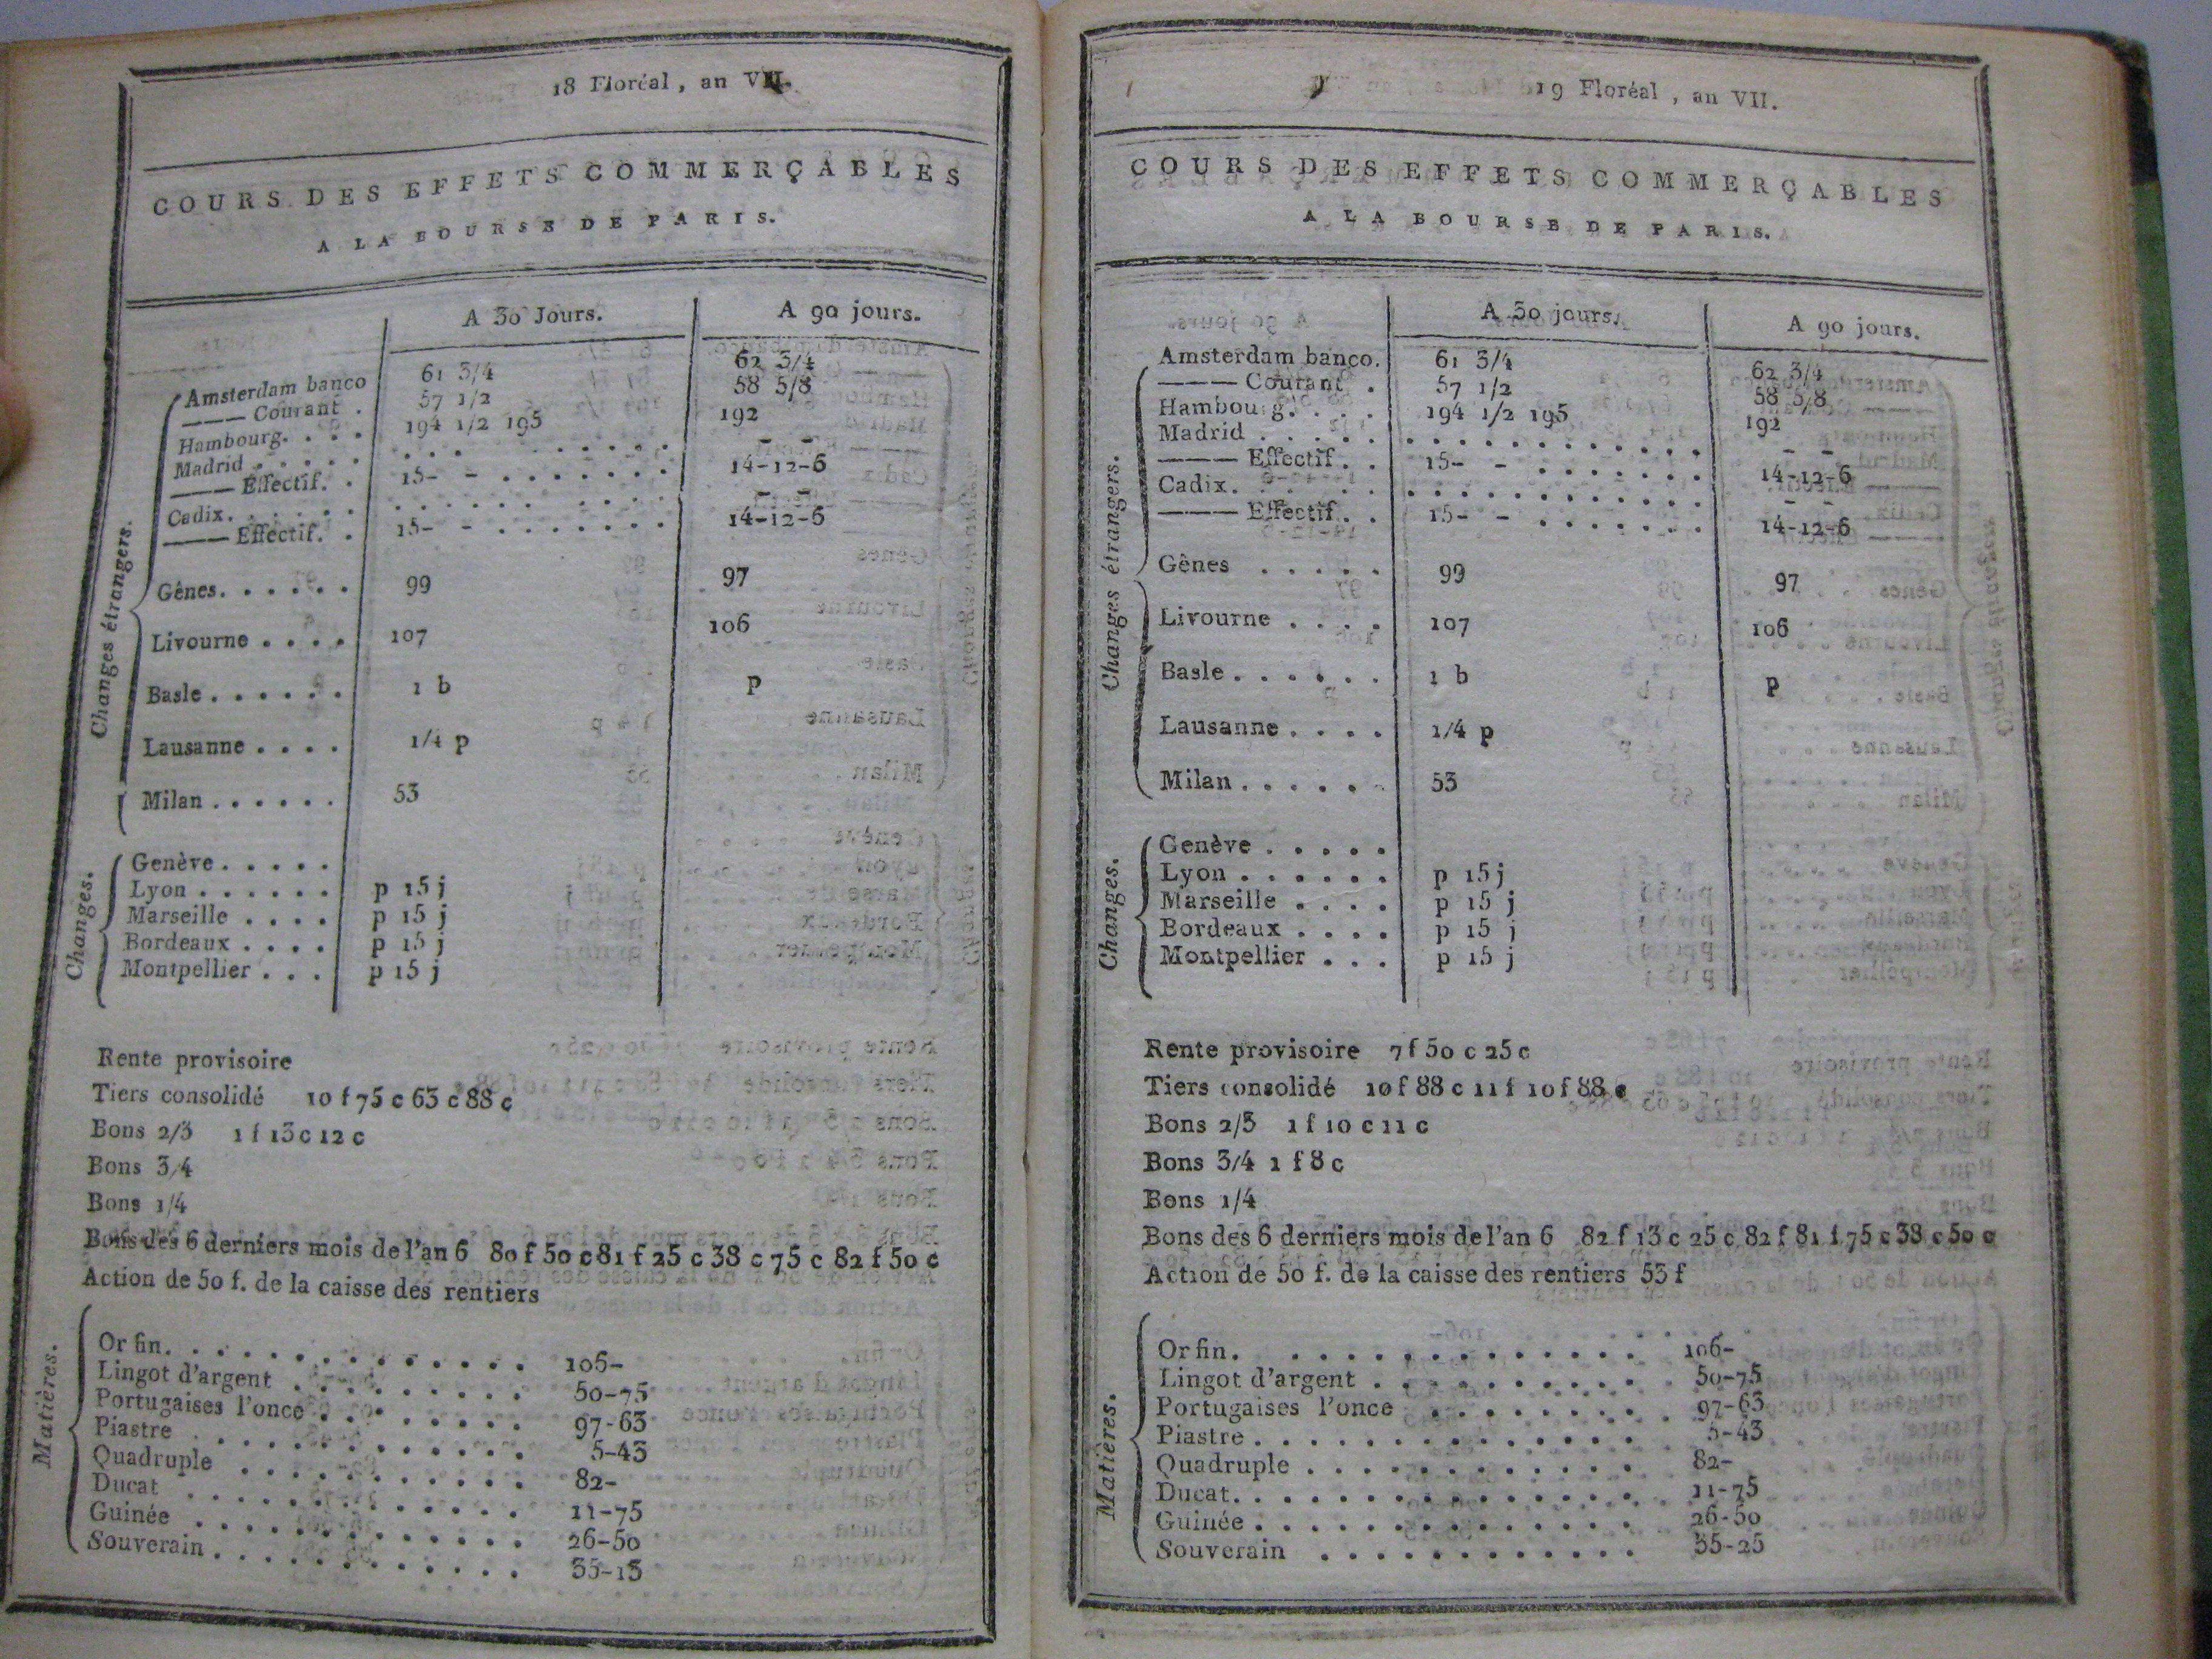 18 Floréal, an VII.
COURS DES EFFETS COMMERÇABLES
A LA BOURSE DE PARIS.
A 30 Jours. A 90 jours.
Changes étrangers.
Amsterdam banco 61 3/4 62 3/4
——— Courant . 57 1/2 58 5/8
Hambourg. . . . 194 1/2 195 192
Madrid . . . . . . . . . . . . . . - -
——— Effectif. . 15- - . . . . . . . 14-12-6
Cadix. . . . . . . . . . . . . . . - -
——— Effectif. . 15- - . . . . . . . 14-12-6
Gênes. . . . . . 99 97
Livourne . . . . 107 106
Basle . . . . . . 1 b p
Lausanne . . . . 1/4 p
Milan . . . . . . 53
Changes.
Genève . . . . .
Lyon . . . . . . p 15 j
Marseille . . . . p 15 j
Bordeaux . . . . p 15 j
Montpellier . . . p 15 j
Rente provisoire
Tiers consolidé 10 f 75 c 63 c 88 c
Bons 2/3 1 f 13 c 12 c
Bons 3/4
Bons 1/4
Bons des 6 derniers mois de l'an 6 80 f 50 c 81 f 25 c 38 c 75 c 82 f 50 c
Action de 50 f. de la caisse des rentiers
Matières.
Or fin. . . . . . . . . . . . . . 106-
Lingot d'argent . . . . . . . . . 50-75
Portugaises l'once . . . . . . . . 97-63
Piastre . . . . . . . . . . . . 5-43
Quadruple . . . . . . . . . . . 82-
Ducat . . . . . . . . . . . . . 11-75
Guinée . . . . . . . . . . . . . 26-50
Souverain . . . . . . . . . . . . 35-13
19 Floréal, an VII.
COURS DES EFFETS COMMERÇABLES
A LA BOURSE DE PARIS.
A 30 jours. A 90 jours.
Changes étrangers.
Amsterdam banco. 61 3/4 62 3/4
——— Courant . 57 1/2 58 5/8
Hambourg. . . . 194 1/2 195 192
Madrid . . . . . . . . . . . . . . . . - -
——— Effectif. . 15- - . . . . . . . 14-12-6
Cadix. . . . . . . . . . . . . . . . . - -
——— Effectif. . 15- - . . . . . . . 14-12-6
Gênes . . . . . 99 97
Livourne . . . . 107 106
Basle . . . . . . 1 b p
Lausanne . . . . 1/4 p
Milan . . . . . . 53
Changes.
Genève . . . . .
Lyon . . . . . . p 15 j
Marseille . . . . p 15 j
Bordeaux . . . . p 15 j
Montpellier . . . p 15 j
Rente provisoire 7 f 50 c 25 c
Tiers consolidé 10 f 88 c 11 f 10 f 88 c
Bons 2/3 1 f 10 c 11 c
Bons 3/4 1 f 8 c
Bons 1/4
Bons des 6 derniers mois de l'an 6 82 f 13 c 25 c 82 f 81 f 75 c 38 c 50 c
Action de 50 f. de la caisse des rentiers 53 f
Matières.
Or fin. . . . . . . . . . . . . . 106-
Lingot d'argent . . . . . . . . . . 50-75
Portugaises l'once . . . . . . . . . 97-63
Piastre . . . . . . . . . . . . . . 5-43
Quadruple . . . . . . . . . . . . 82-
Ducat. . . . . . . . . . . . . . . 11-75
Guinée . . . . . . . . . . . . . . 26-50
Souverain . . . . . . . . . . . . 35-25